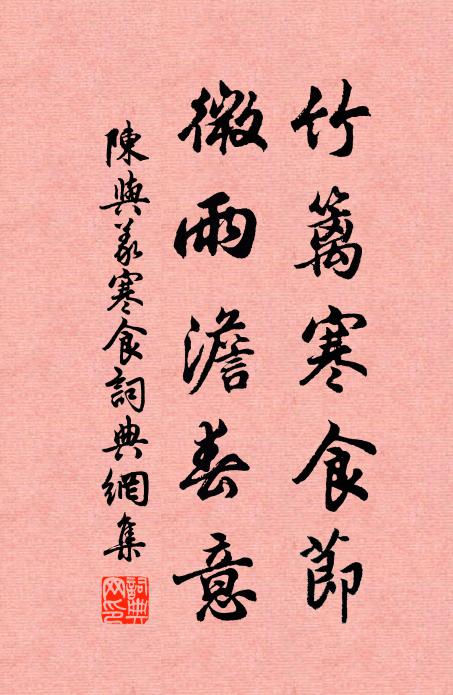 竹篱寒食節
微雨澹春意
陳與義寒食詞典網集
詞典网印